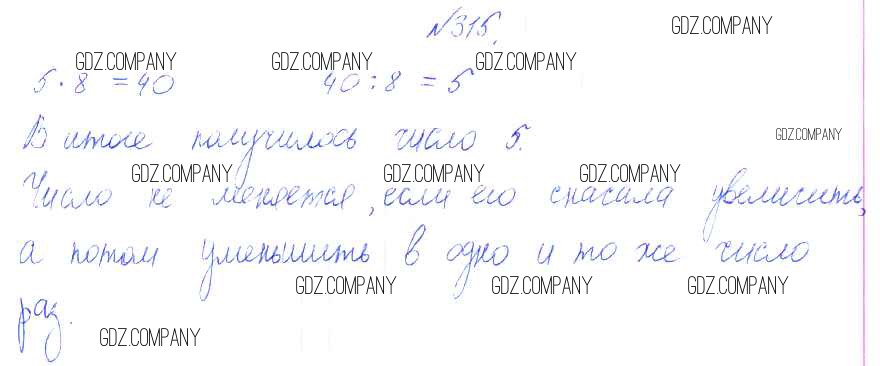 №315. GDZ.COMPANY
GDZ.COMPANY GDZ.COMPANY GDZ.COMPANY
5 · 8 = 40 40 : 8 = 5
В итоге получилось число 5. GDZ.COMPANY
GDZ.COMPANY GDZ.COMPANY GDZ.COMPANY
Число не меняется, если его сначала увеличить,
а потом уменьшить в одно и то же число
GDZ.COMPANY GDZ.COMPANY GDZ.COMPANY
раз.
GDZ.COMPANY